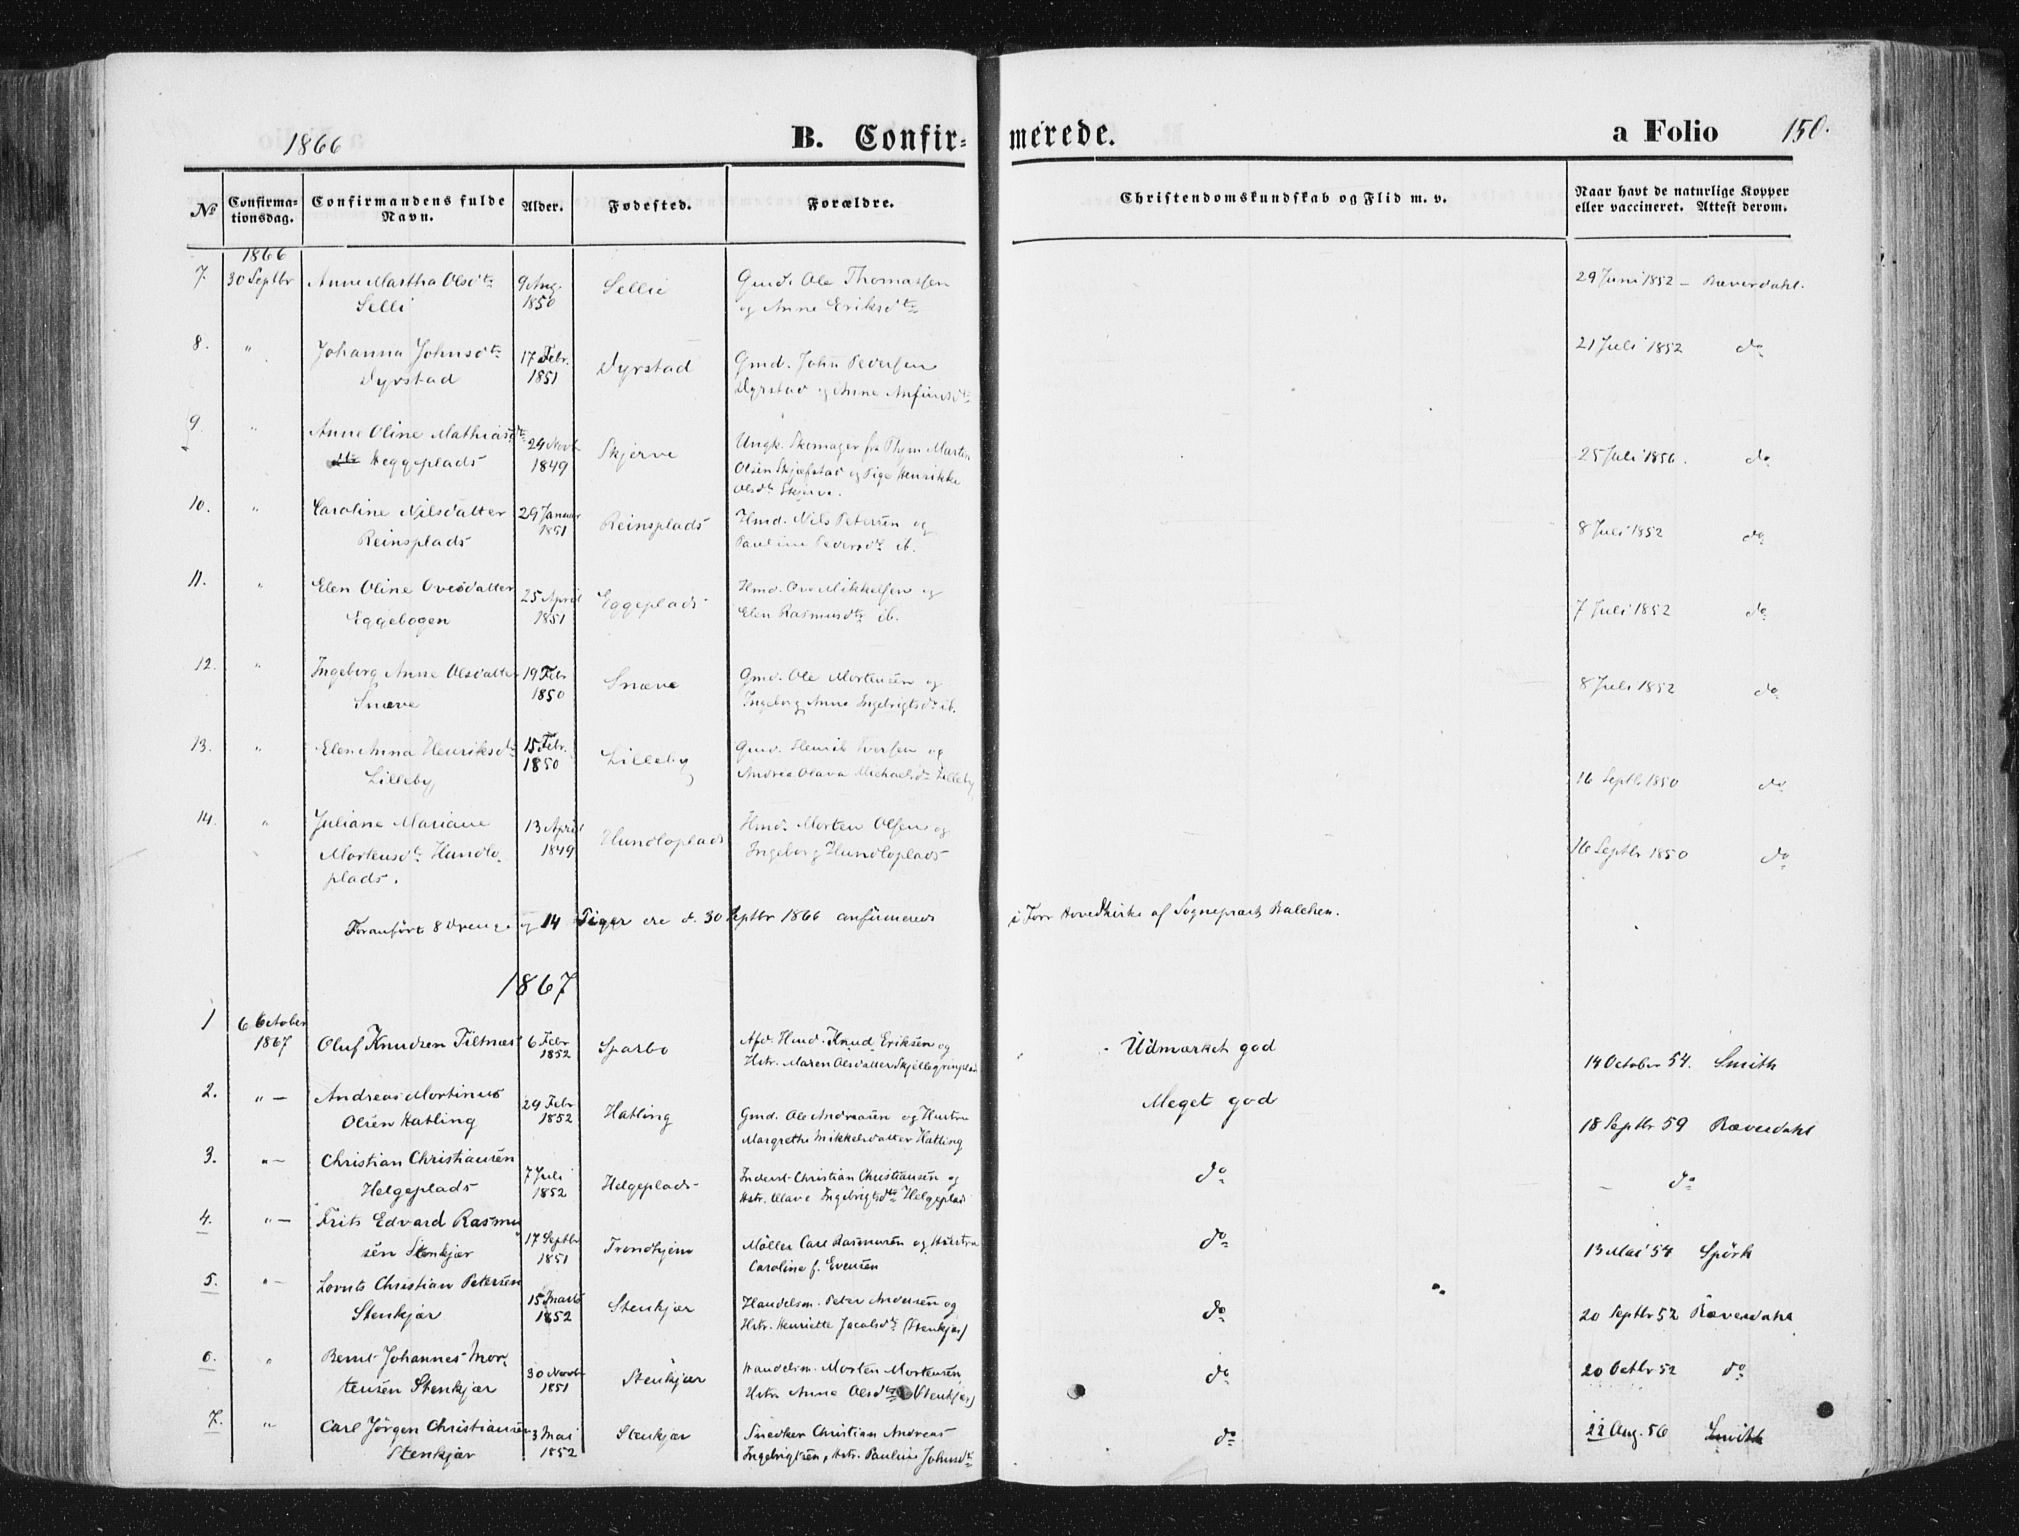 1866 B. Confirmerede. a Folio 150.
No Confirmationsdag. Confirmandens fulde Navn. Alder. Fødested. Forældre. Christendomskundskab og Flid m. v. Naar havt de naturlige Kopper eller vaccineret. Attest derom.
1866
7. 30 Septbr Anne Martha Olsdtr 9 Aug. Sellie Gmd. Ole Thomassen 29 Juni 1852 - Ræverdahl.
Selli 1850 og Anne Eriksdtr
8. " Johanna Johnsdtr 17 Febr. Dyrstad Gmd. John Pedersen 21 Juli 1852 do
Dyrstad 1851 Dyrstad og Anne Anfinsdtr
9. " Anne Oline Mathiasdtr 24 Novb Skjerve Ungk. Skomager fra Thjem Martin 25 Juli 1856. do
Heggeplads 1849 Olsen Skjefstad og Pige Henrikke
Olsdtr Skjerve.
10. " Caroline Nilsdatter 29 Januar Reinsplads Hmd. Nils Petersen og 8 Juli 1852 do
Reinsplads 1851 Pauline Pedersdtr ib.
11. " Elen Oline Ovesdatter 25 April Eggeplads Hmd. Ove Mikkelsen og 7 Juli 1852 do
Eggebogen 1851 Elen Rasmusdtr ib.
12. " Ingeborg Anne Olsdatter 19 Febr Snæve Gmd. Ole Mortensen og 8 Juli 1852 do
Snæve 1850 Ingeborg Anna Ingebrigtsdtr ib.
13. " Elen Anna Henriksdtr 15 Febr. Lilleby Gmd. Henrik Iversen og 16 Septb 1850 do
Lilleby 1850 Andrea Olava Michaelsdtr Lilleby
14. " Juliane Mariane 13 April Hundloplads Hmd. Morten Olsen og 16 Septbr 1850 do
Mortensdtr Hundlo- 1849 Ingeborg Hundloplads
plads.
Foranførte 8 Drenge og 14 Piger ere d. 30 Septbr 1866 confirmerede i Hovedkirke af Sognepræst Balchen.
1867
1 6 October Oluf Knudsen Tiltnæs 6 Febr Sparbo Afd. Hmd. Knud Eriksen og Udmærket god 14 October 54. Smith
1867 1852 Hstr. Maren Olsdatter Skjellegrinplads
2. " - Andreas Mortinus 29 Febr Hatling Gmd. Ole Andreasen og Hustru Meget god 18 Septbr 59 Ræverdahl
Olsen Hatling 1852 Margrethe Mikkelsdatter Hatling
3. " - Christian Christiansen 7 Juli Helgeplads Inderst Christian Christiansen og do - do
Helgeplads 1852 Hstr. Olave Ingebrigtsdtr Helgeplads
4. " - Frits Edvard Rasmu 17 Septbr Trondhjem Møller Carl Rasmusen og Hustru do 13 Mai 54 Spörk
sen Stenkjær 1851 Caroline f. Evensen
5. " - Lornts Christian Petersen 15 Marts Stenkjær Handelsm. Peter Andersen og do 20 Septbr 52 Ræverdahl
Stenkjær 1852 Hstr. Henriette Jacobsdtr (Stenkjær)
6. " Bernt Johannes Mor- 30 Novb Stenkjær Handelsm. Morten Mortensen do 20 Octbr 52 do
tensen Stenkjær 1851 Hstr. Anne Olsdtr (Stenkjær)
7. " Carl Jørgen Christiansen 3 Mai Stenkjær Snedker Christian Andreas do 22 Aug. 56 Smith
Stenkjær 1852 Ingebrigtsen, Hstr. Pauline Johnsdtr